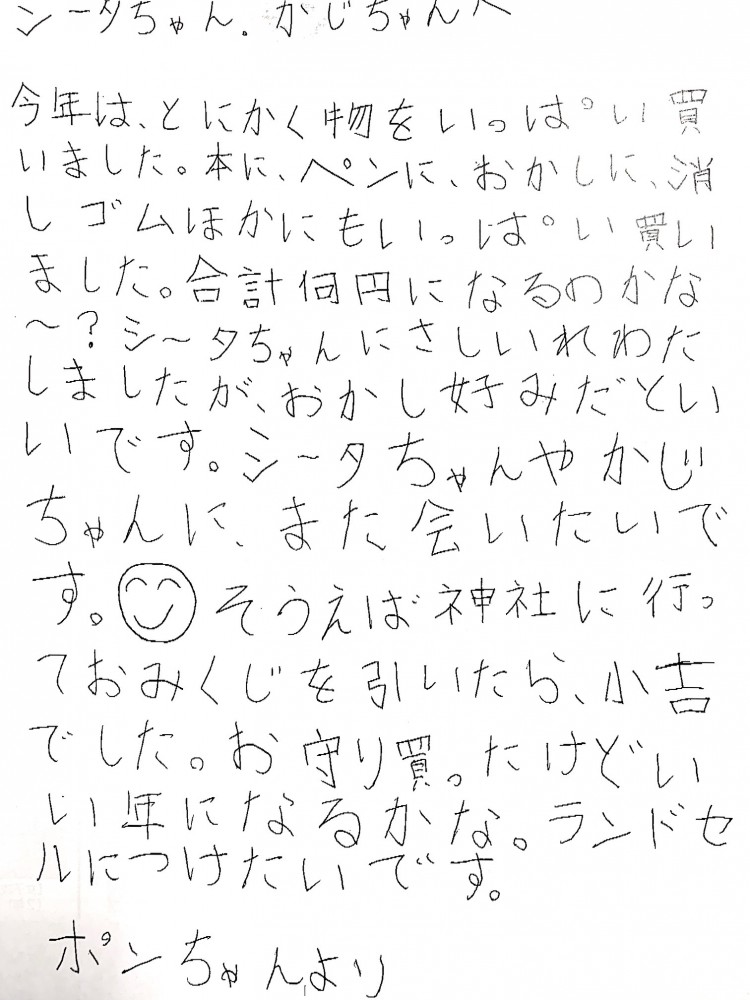 シータちゃん。かじちゃんへ
今年は、とにかく物をいっぱい買
いました。本に、ペンに、おかしに、消
しゴムほかにもいっぱい買い
ました。合計何円になるのかな
〜？シータちゃんにさしいれわた
しましたが、おかし好みだとい
いです。シータちゃんやかじ
ちゃんに、また会いたいで
す。そうえば神社に行っ
ておみくじを引いたら、小吉
でした。お守り買ったけどい
い年になるかな。ランドセ
ルにつけたいです。
ポンちゃんより